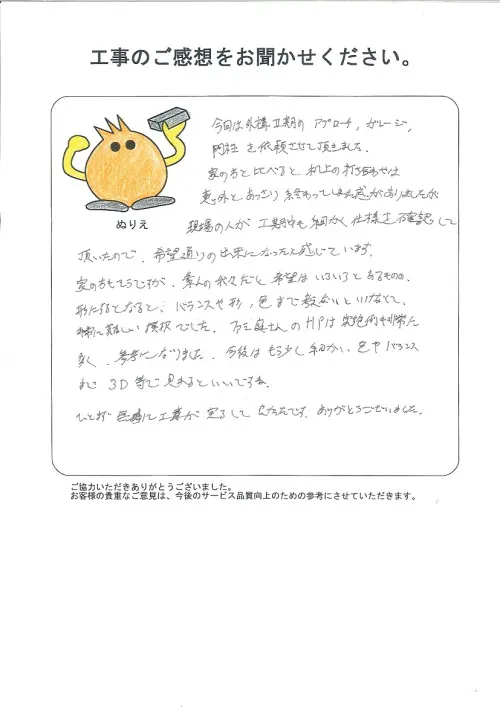 工事のご感想をお聞かせください。
今回は外構工事の アプローチ, ガレージ,
門柱 を依頼させて頂きました.
家の方と比べると 机上の打ち合わせは
意外と あっさり 終わってしまった感がありましたが
ぬりえ
現場の人が 工期中も 細かく 仕様を確認して
頂いたので, 希望通りの出来になったと感じています.
家の方もそうですが, 素人の我々だと 希望は いろいろと あるものの,
形にするとなると, バランスや形, 色まで 教ないといけなくて,
非常に難しい 選択でした. さんのHPは 実施例も非常に
多く, 参考になりました. 今後は もう少し 細かい 色や バランス
まで 3D 等で 見れると いいですね.
ひとまず 無事に 工事が 完了して よかったです. ありがとうございました.
ご協力いただきありがとうございました。
お客様の貴重なご意見は、今後のサービス品質向上のための参考にさせていただきます。